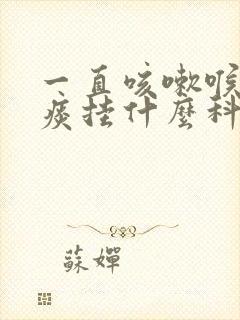 一直咳嗽喉
痰挂什麼科
蘇嬋